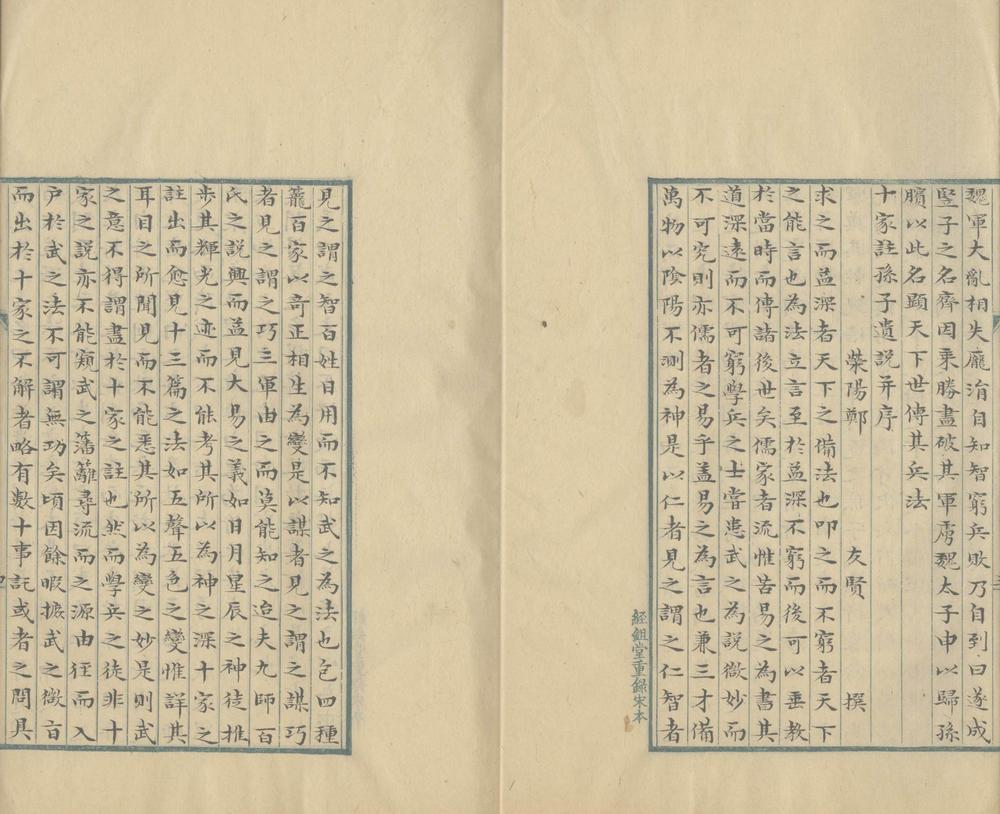 魏軍大亂相失龐涓自知智窮兵敗乃自到曰遂成
豎子之名齊因乗勝盡破其軍虜魏太子申以歸孫
臏以此名顯天下世傳其兵法
十家註孫子遺說并序
滎陽鄭 友賢 撰
求之而益深者天下之備法也叩之而不窮者天下
之能言也為法立言至於益深不窮而後可以垂教
於當時而傳諸後世矣儒家者流惟苦易之為書其
道深遠而不可窮學兵之士嘗患武之為說微妙而
不可究則亦儒者之易乎盖易之為言也兼三才備
萬物以陰陽不測為神是以仁者見之謂之仁智者
經鉏堂重錄宋本
見之謂之智百姓日用而不知武之為法也包四種
籠百家以奇正相生為變是以謀者見之謂之謀巧
者見之謂之巧三軍由之而莫能知之迨夫九師百
氏之說興而益見大易之義如日月星辰之神徒推
步其輝光之迹而不能考其所以為神之深十家之
註出而愈見十三篇之法如五聲五色之變惟詳其
耳目之所聞見而不能悉其所以為變之妙是則武
之意不得謂盡於十家之註也然而學兵之徒非十
家之說亦不能窺武之藩籬尋流而之源由徑而入
户於武之法不可謂無功矣頃因餘暇摭武之微旨
而出於十家之不解者略有數十事託或者之問具